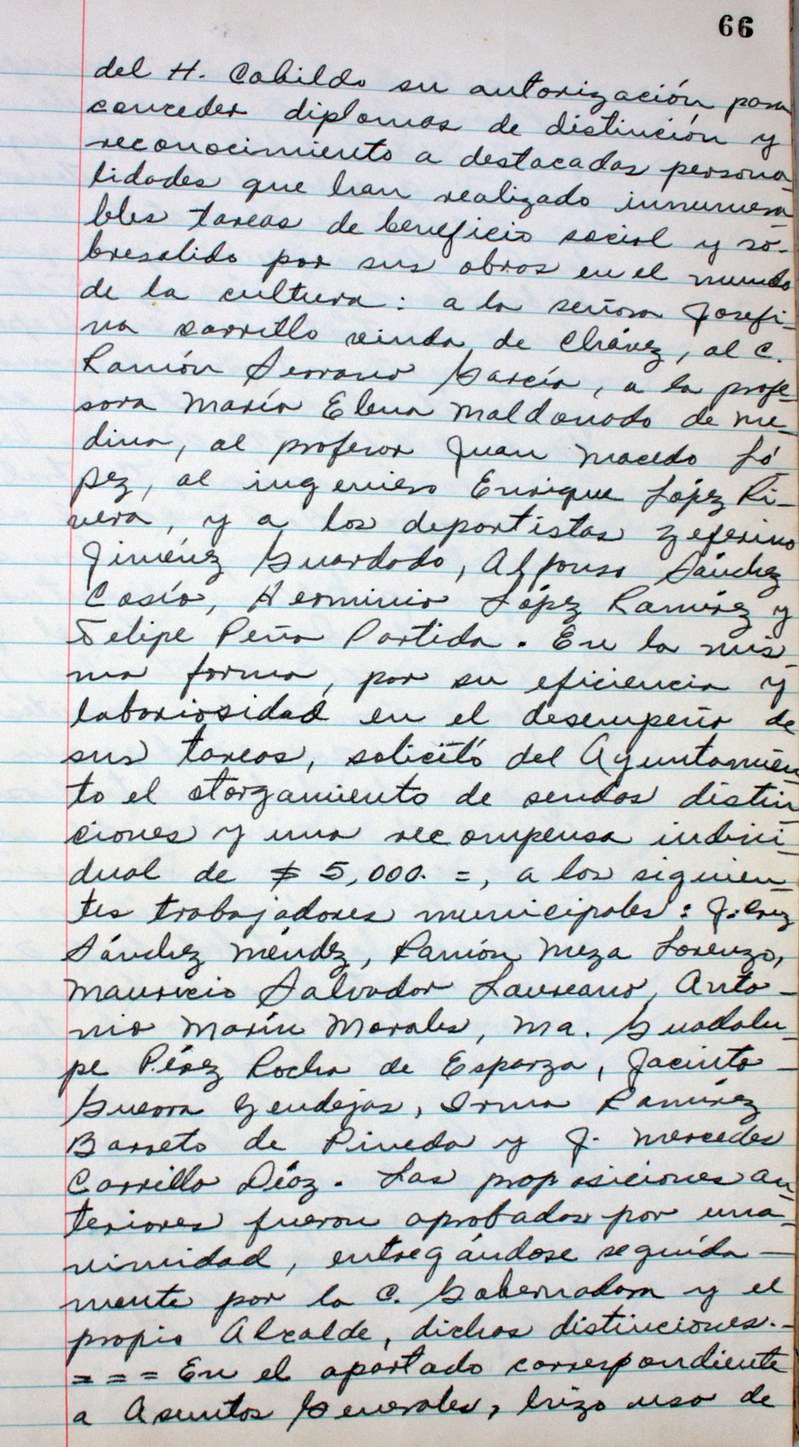 66
del H. Cabildo su autorización para
conceder diplomas de distinción y
reconocimiento a destacadas persona-
lidades que han realizado innumera-
bles tareas de beneficio social y so-
bresalido por sus obras en el mundo
de la cultura: a la señora Josefi-
na Carrillo viuda de Chávez, al C.
Ramón Serrano García, a la profe-
sora María Elena Maldonado de Me-
dina, al profesor Juan Macedo Ló-
pez, al ingeniero Enrique López Ri-
vera, y a los deportistas Zeferino
Jiménez Guardado, Alfonso Sánchez
Cosío, Herminio López Ramírez y
Felipe Peña Partida. En la mis-
ma forma, por su eficiencia y
laboriosidad en el desempeño de
sus tareas, solicitó del Ayuntamien-
to el otorgamiento de sendas distin-
ciones y una recompensa indivi-
dual de $ 5,000. =, a los siguien-
tes trabajadores municipales: J. Cruz
Sánchez Méndez, Ramón Meza Lorenzo,
Mauricio Salvador Laureano, Anto-
nio Marín Morales, Ma. Guadalu-
pe Pérez Rocha de Esparza, Jacinto
Guerra Zendejas, Irma Ramírez
Barreto de Pineda y J. Mercedes
Carrillo Díaz. Las proposiciones an-
teriores fueron aprobadas por una-
nimidad, entregándose seguida-
mente por la C. Gobernadora y el
propio Alcalde, dichas distinciones.-
= = = En el apartado correspondiente
a Asuntos Generales, hizo uso de